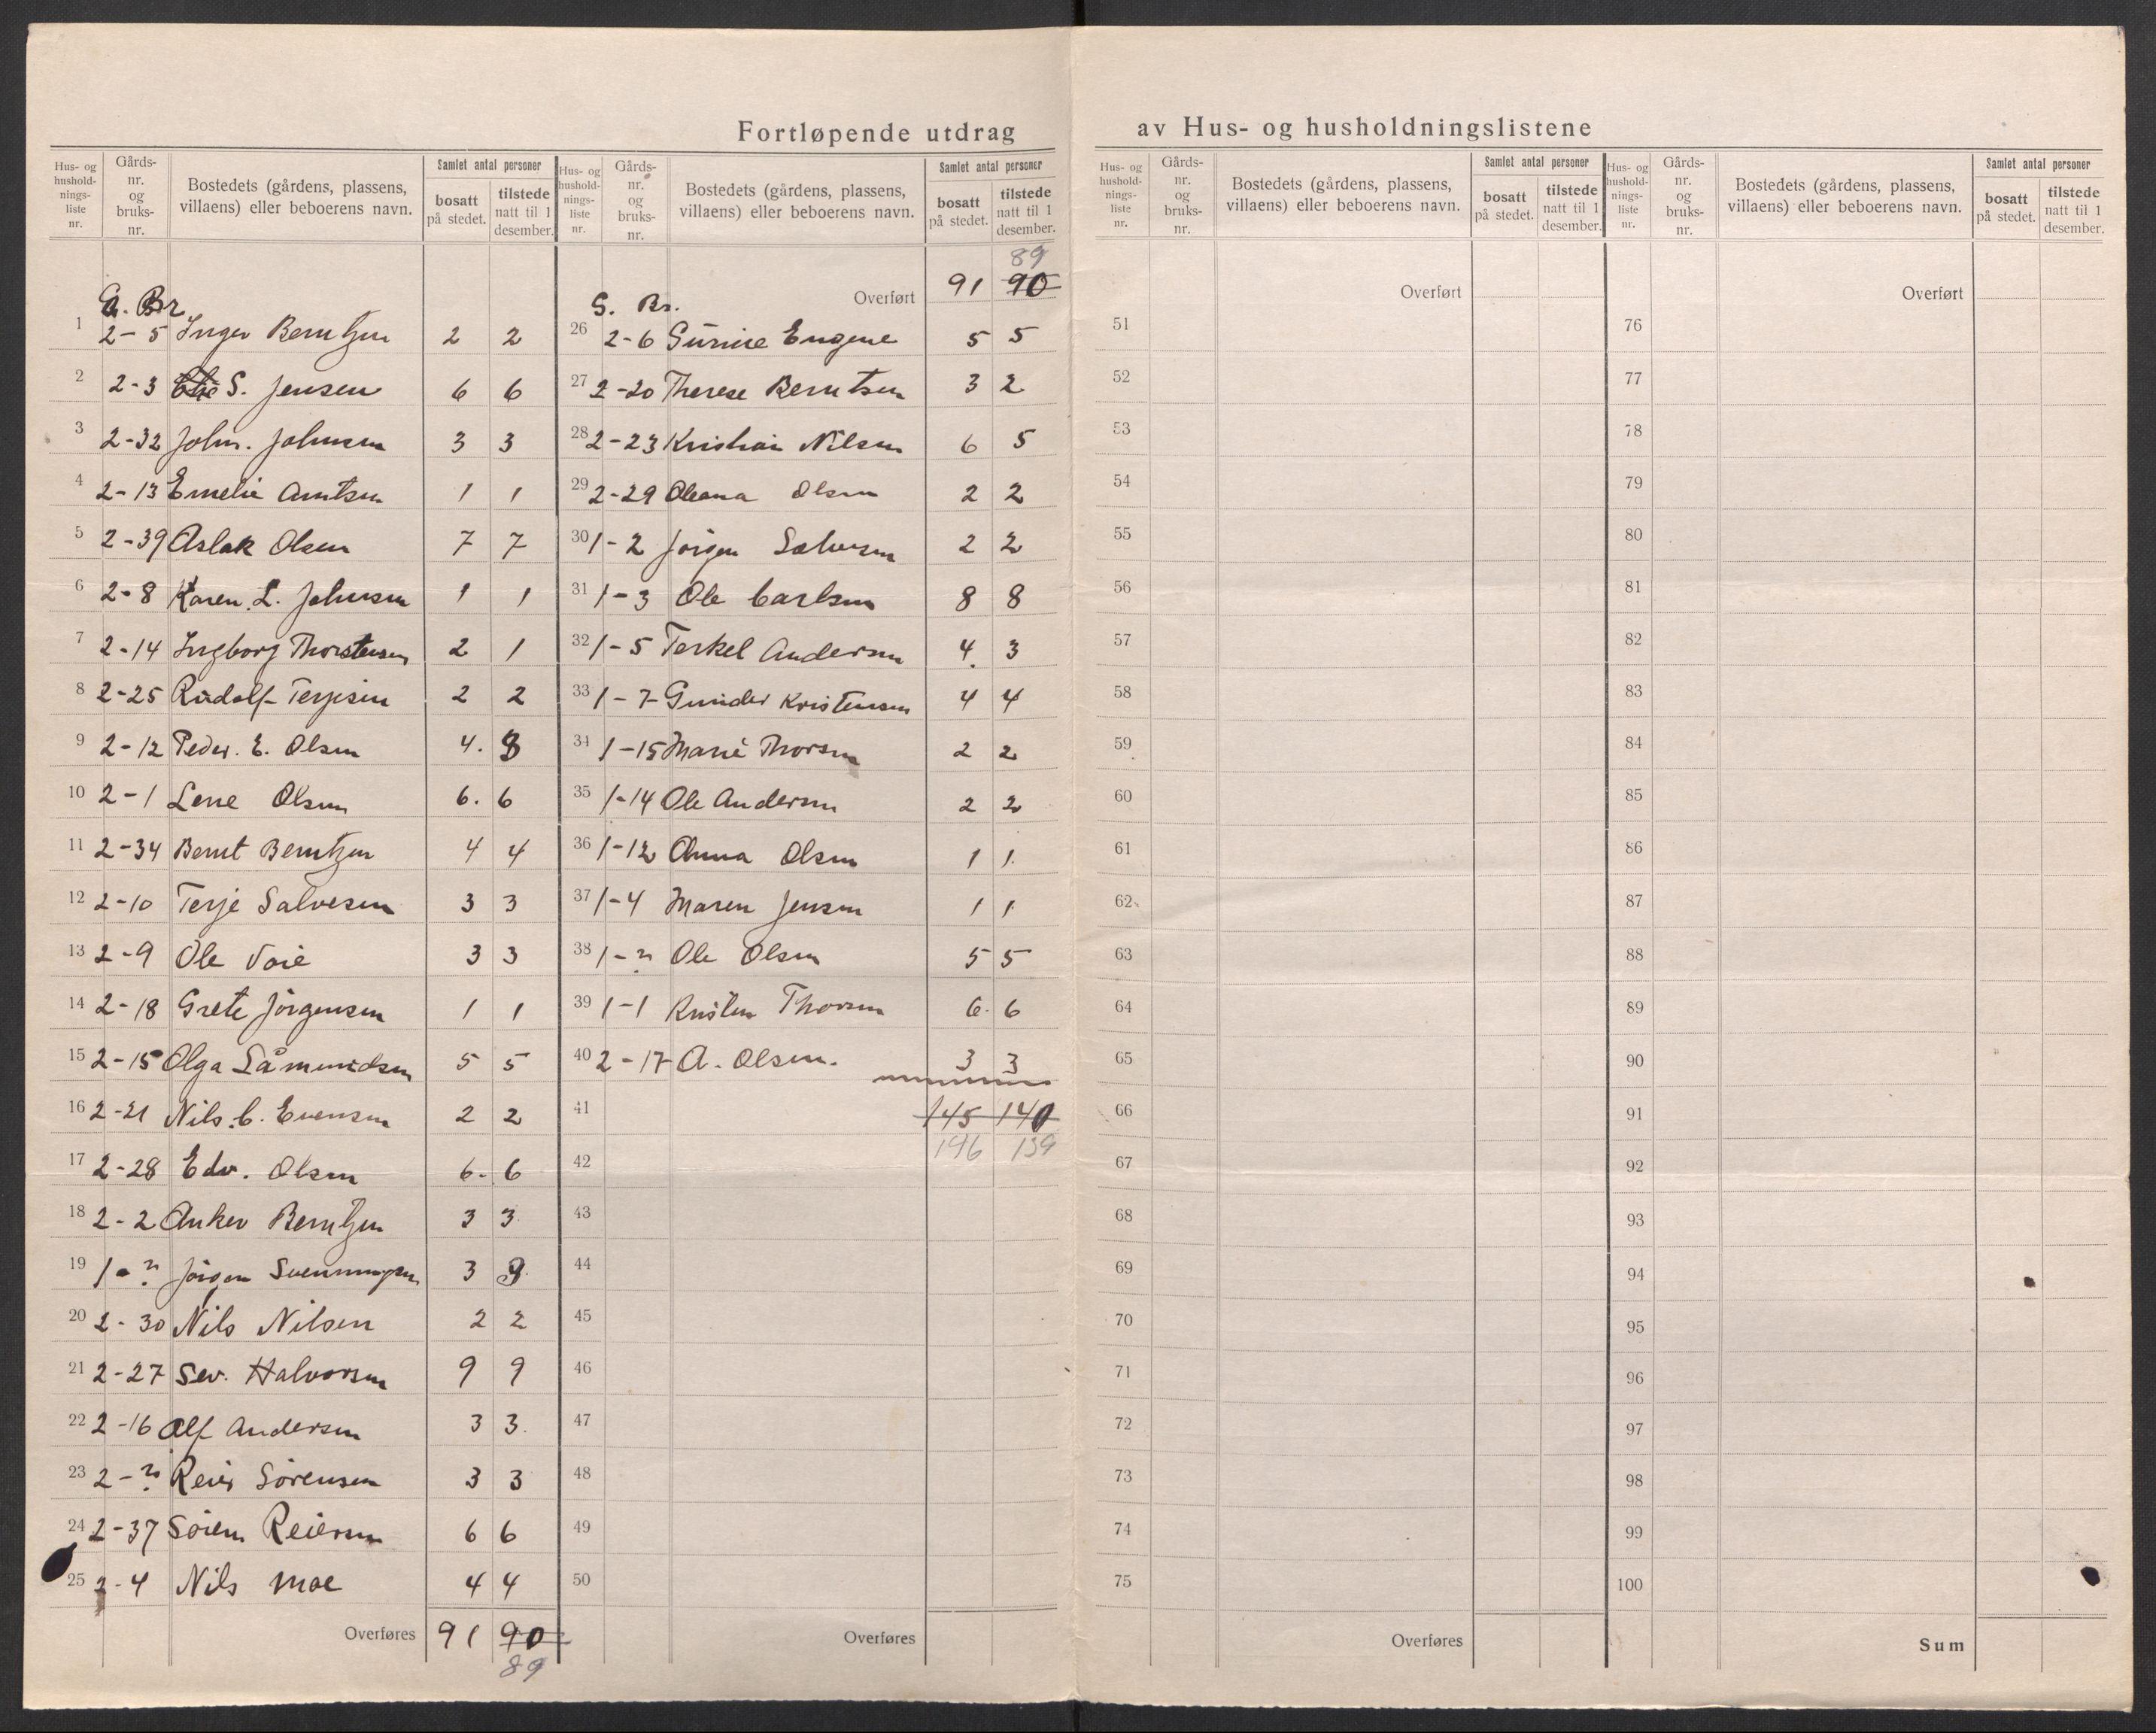 Fortløpende utdrag av Hus- og husholdningslistene
Hus- og hushold-nings-liste nr. Gårds-nr. og bruks-nr. Bostedets (gårdens, plassens, villaens) eller beboerens navn. Samlet antal personer bosatt på stedet. tilstede natt til 1 desember.
G. Br.
1 2-5 Inger Berntzen 2 2
2 2-3 S. Jensen 6 6
3 2-32 John. Johnsen 3 3
4 2-13 Emelie Arntsen 1 1
5 2-39 Aslak Olsen 7 7
6 2-8 Karen. L. Johnsen 1 1
7 2-14 Ingborg Thorstensen 2 1
8 2-25 Rudolf Terjesen 2 2
9 2-12 Peder. E. Olsen 4. 3
10 2-1 Lene Olsen 6. 6
11 2-34 Bernt Berntzen 4 4
12 2-10 Terje Salvesen 3 3
13 2-9 Ole Voie 3 3
14 2-18 Grete Jörgensen 1 1
15 2-15 Olga Såmundsen 5 5
16 2-21 Nils. C. Evensen 2 2
17 2-28 Edv. Olsen 6. 6
18 2-2 Anker Berntzen 3 3
19 1-? Jörgen Svenningsen 3 3
20 2-30 Nils Nilsen 2 2
21 2-27 Sev. Halvorsen 9 9
22 2-16 Alf Andersen 3 3.
23 2-? Reier Sörensen 3 3
24 2-37 Sören Reiersen 6 6
25 2-4 Nils Moe 4 4
Overføres 91 90
89
Hus- og hushold-nings-liste nr. Gårds-nr. og bruks-nr. Bostedets (gårdens, plassens, villaens) eller beboerens navn. Samlet antal personer bosatt på stedet. tilstede natt til 1 desember.
89
Overført 91 90
G. Br.
26 2-6 Eugene 5 5
27 2-20 Therese Berntsen 3 2
28 2-23 Kristian Nilsen 6 5
29 2-29 Oleana Olsen 2 2
30 1-2 Jörgen Salvesen 2 2
31 1-3 Ole Carlsen 8 8
32 1-5 Terkel Andersen 4. 3
33 1-7 Gunder Kristensen 4 4
34 1-15 Marie Thorsen 2 2
35 1-14 Ole Andersen 2 2
36 1-12 Anna Olsen 1 1.
37 1-4 Maren Jensen 1 1
38 1-? Ole Olsen 5 5
39 1-1 Kristen Thorsen 6. 6
40 2-17 A. Olsen. 3 3
41 145 140
146 139
42
43
44
45
46
47
48
49
50
Overføres
Hus- og hushold-nings-liste nr. Gårds-nr. og bruks-nr. Bostedets (gårdens, plassens, villaens) eller beboerens navn. Samlet antal personer bosatt på stedet. tilstede natt til 1 desember.
Overført
51
52
53
54
55
56
57
58
59
60
61
62
63
64
65
66
67
68
69
70
71
72
73
74
75
Overføres
Hus- og hushold-nings-liste nr. Gårds-nr. og bruks-nr. Bostedets (gårdens, plassens, villaens) eller beboerens navn. Samlet antal personer bosatt på stedet. tilstede natt til 1 desember.
Overført
76
77
78
79
80
81
82
83
84
85
86
87
88
89
90
91
92
93
94
95
96
97
98
99
100
Sum